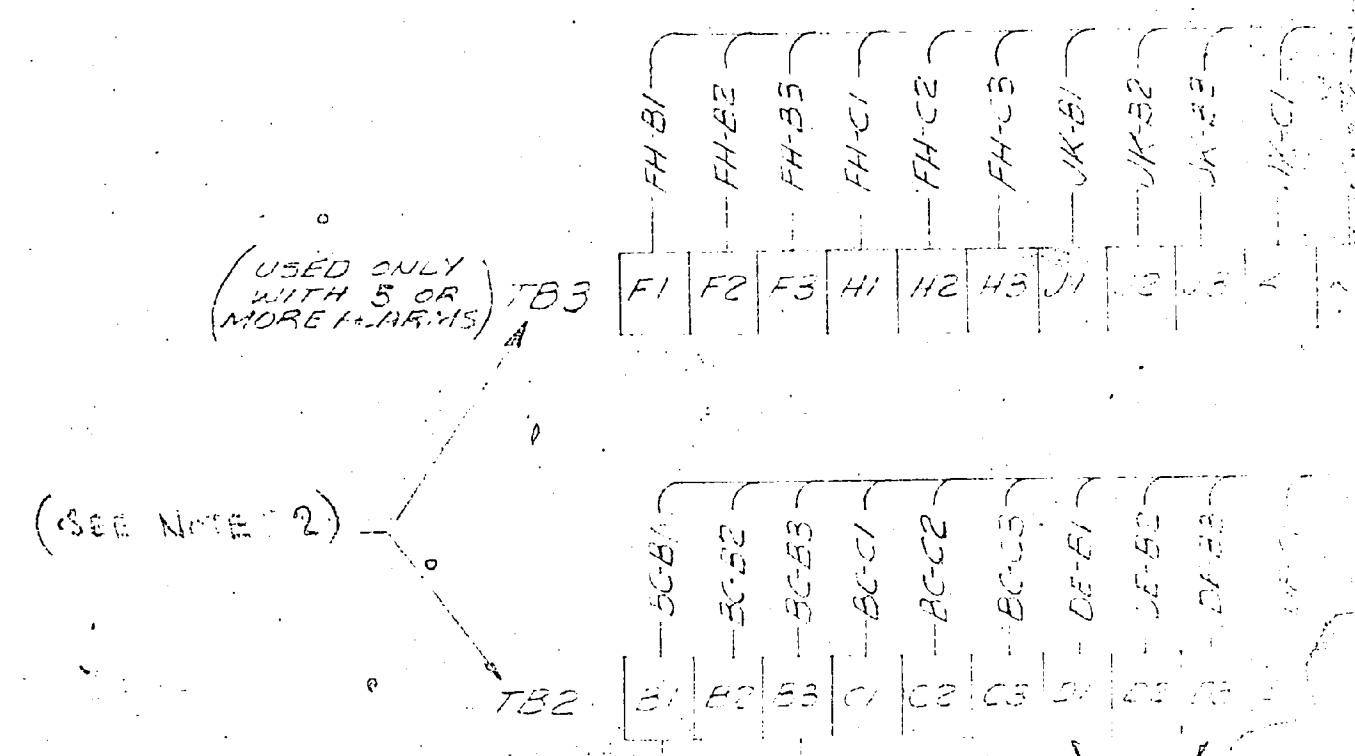 FH-B1 FH-B2 FH-B3 FH-C1 FH-C2 FH-C3 JK-B1 JK-B2 JK-B3 JK-C1
(USED ONLY
WITH 5 OR
MORE ALARMS)
TB3 F1 F2 F3 H1 H2 H3 J1 J2 J3
(SEE NOTE 2)
BC-B1 BC-B2 BC-B3 BC-C1 BC-C2 BC-C3 DE-B1 DE-B2 DE-B3
TB2 B1 B2 B3 C1 C2 C3 D1 D2 D3